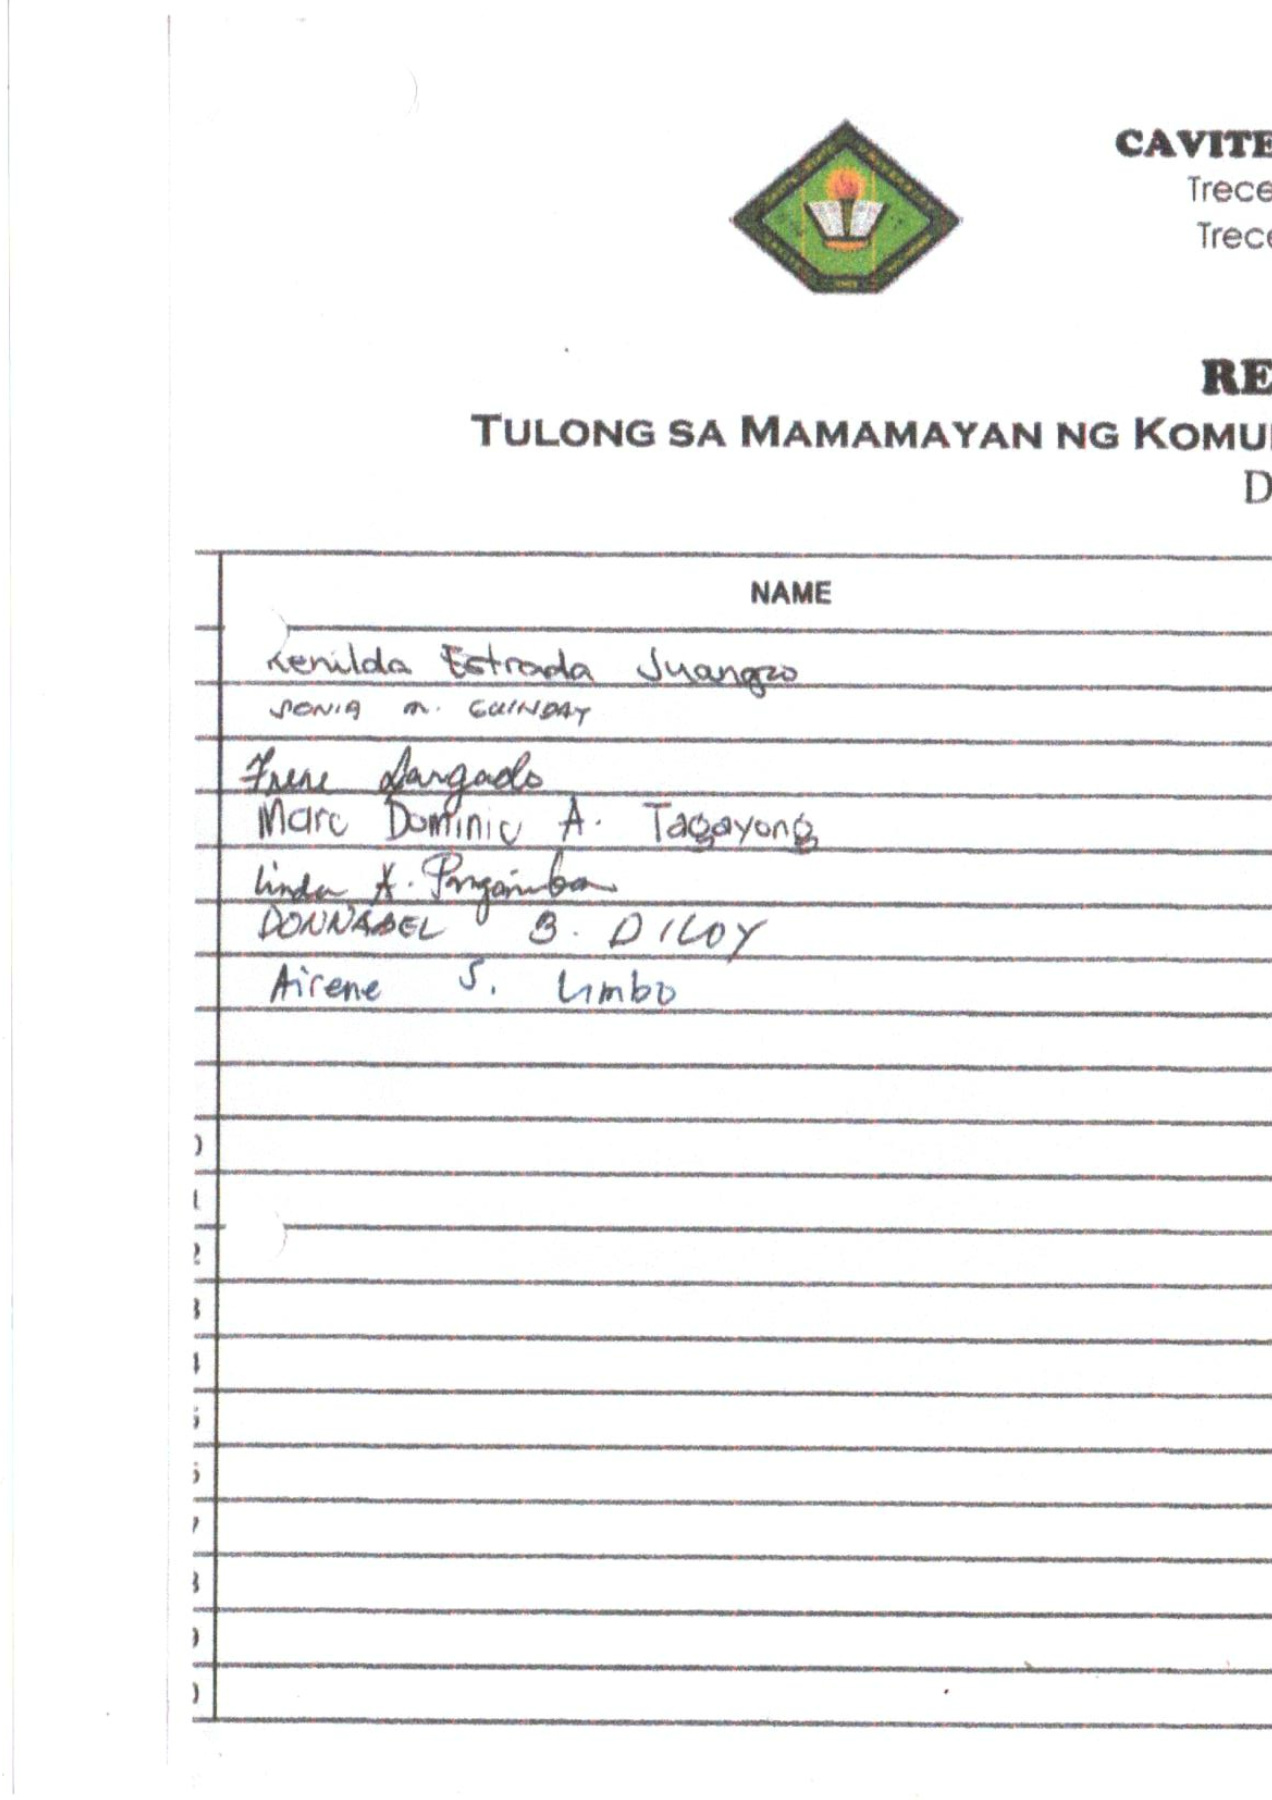 CAVITE
Trece
Trece
RE
TULONG SA MAMAMAYAN NG KOMU
D
NAME
Estrada Juangco
SONIA M. GUINDAY
Irene Dangado
Marc Dominic A. Tagayong
Linda A.
DONNABEL B. DILOY
Airene S. Limbo